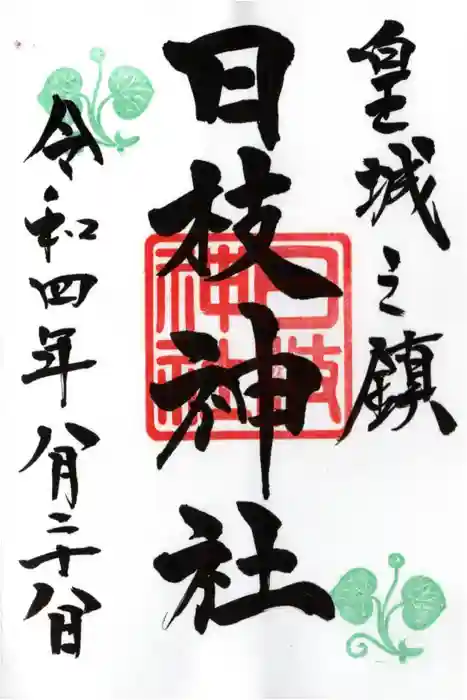 皇城之鎮
日枝神社
日枝神社
令和四年八月二十八日